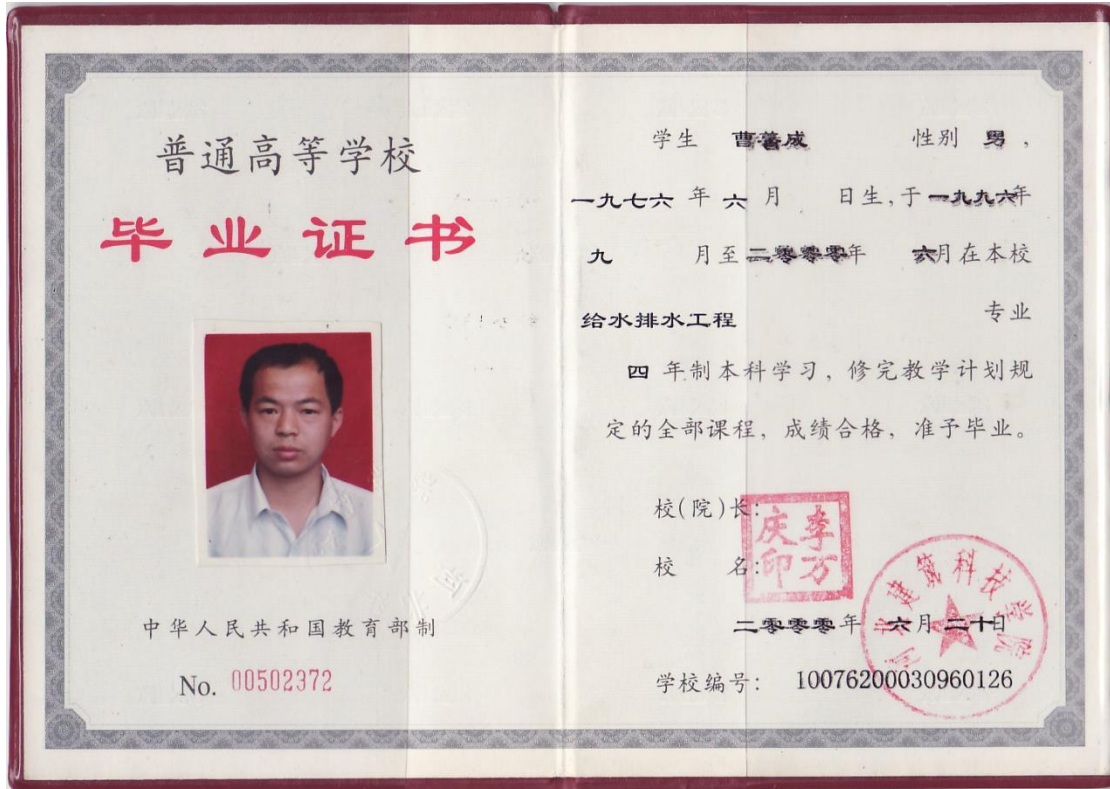 普通高等学校
毕业证书
中华人民共和国教育部制
No. 00502372
学生 曹善成 性别 男，
一九七六 年 六 月 日生，于一九九六年
九 月至二零零零年 六月在本校
给水排水工程 专业
四 年制本科学习，修完教学计划规
定的全部课程，成绩合格，准予毕业。
校(院)长：
李万庆印
校 名：
河北建筑科技学院
二零零零年 六月二十日
学校编号： 10076200030960126